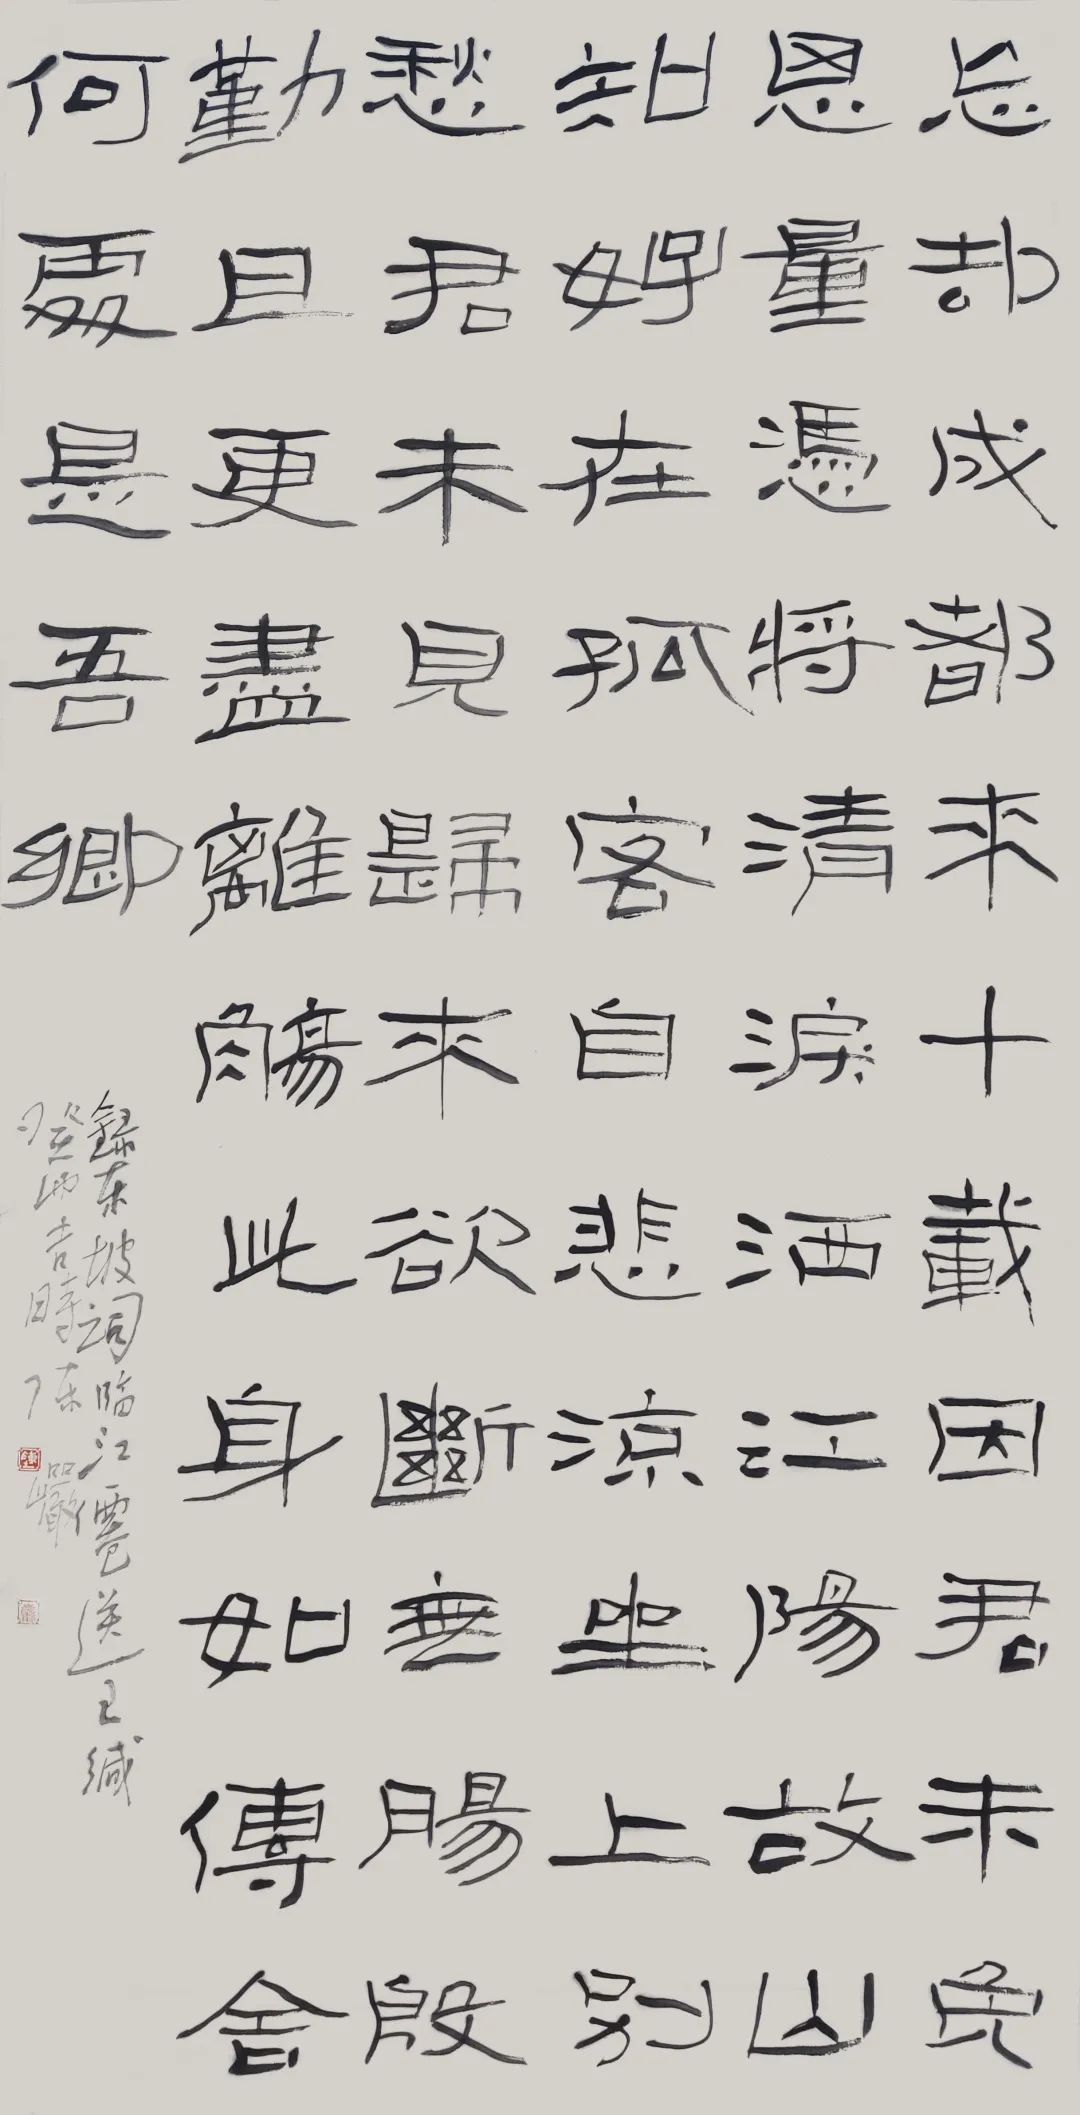 忘却成都來十載因君未免
思量憑將清淚洒江陽故山
知好在孤客自悲涼坐上別
愁君未見歸來欲斷無腸殷
勤且更盡離觴此身如傳舍
何處是吾鄉
錄東坡詞臨江僊送王緘
吉時陳嚴